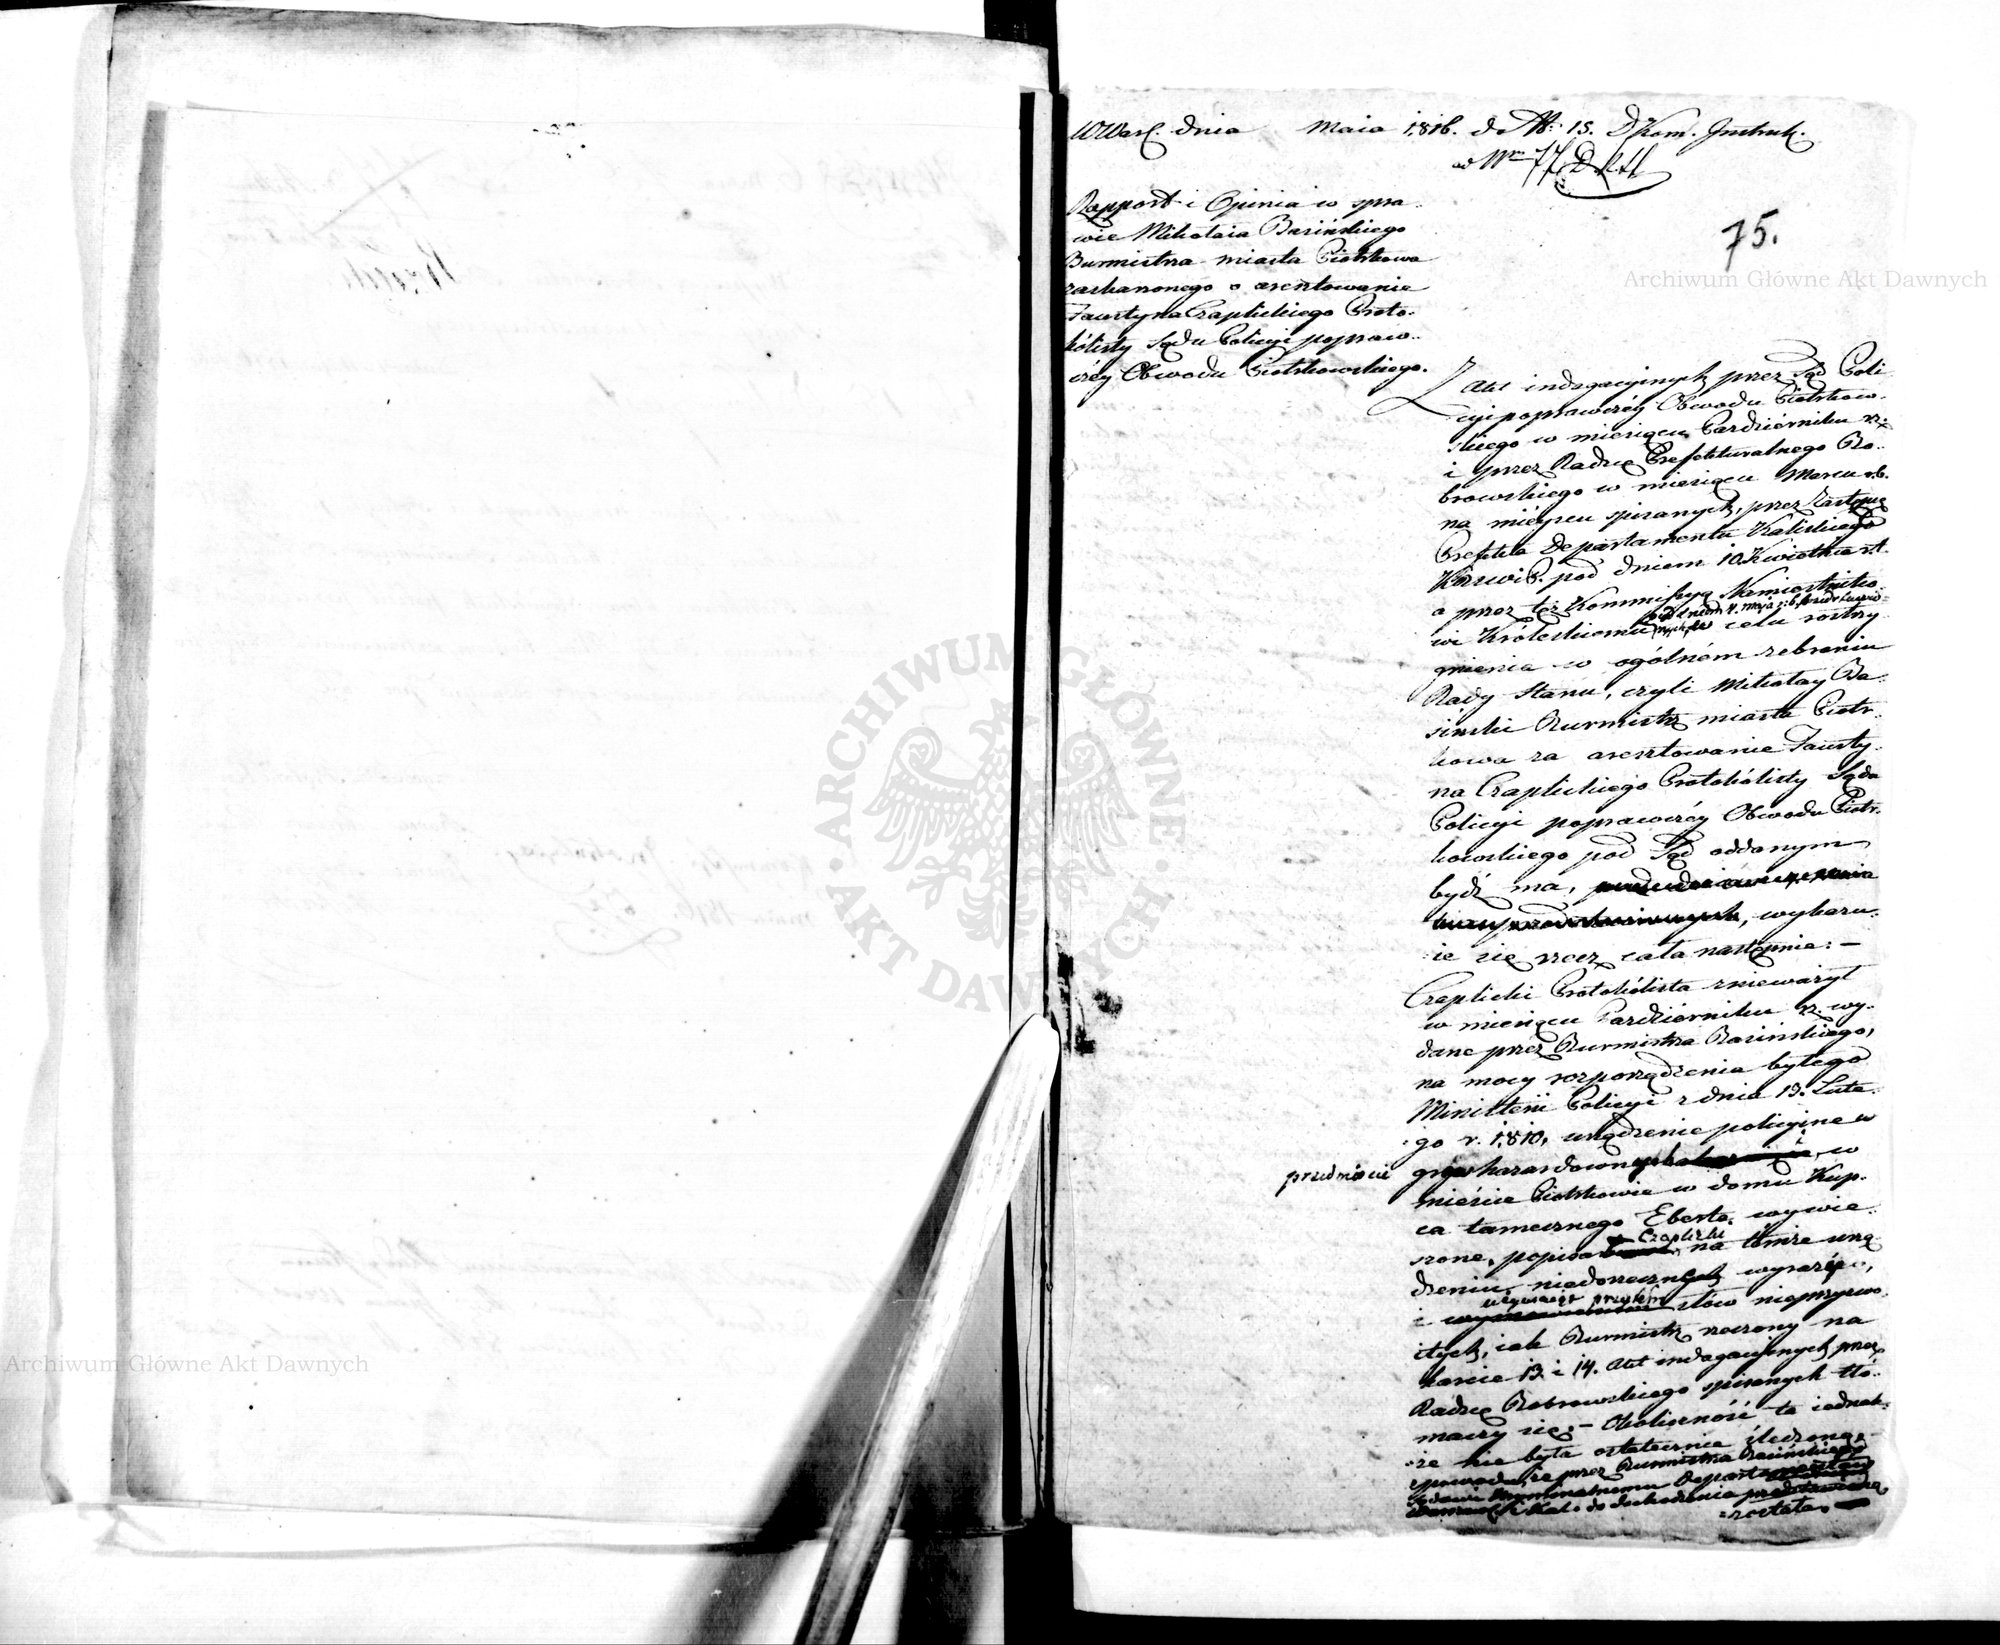 WWars. dnia Maia 1816. do Nr 15. D Kom. Instruk.
ad Nrm 77
75.
Rapport i Opinia w spra-
wie Mikołaia Basińskiego
Burmistrza miasta Piotrkowa
zaskarżonego o aresztowanie
Faustyna Czaplickiego Proto-
kólisty Sądu Policyi popraw-
czéy Obwodu Piotrkowskiego.
Z Akt indagacyinych przez Sąd Poli
cyi poprawczéy Obwodu Piotrkow-
skiego w miesiącu Pazdzierniku rz.
i przez Radzcę Prefekturalnego Bo-
browskiego w miesiącu Marcu r.b.
na mieyscu spisanych, przez Zastępcę
Prefekta Departamentu Kaliskiego
pod dniem 10. Kwietnia r.t.
a przez też Kommissyą Namiestniko-
pod dniem 4. Maja r:b.
wi Królewskiemu w celu roztrzy-
gnienia w ogólném zebraniu
Rady Stanu, czyli Mikołay Ba-
siński Burmistrz miasta Piotr-
kowa za aresztowanie Fausty-
na Czaplickiego Protokólisty Sądu
Policyi poprawczéy Obwodu Piotr-
kowskiego pod Sąd oddanym
bydź ma, wykazu-
ie się rzecz cała następnie: –
Czaplicki Protokólista znieważył
w miesiącu Pazdzierniku rz. wy-
dane przez Burmistrza Basińskiego,
na mocy rozporządzenia byłego
Ministerii Policyi z dnia 13. Lute-
go r. 1810, urządzenie policyine w
przedmiocie
gier hazardownych i w
mieście Piotrkowie w domu Kup-
ca tamecznego Eberta, wywie-
Czaplicki
szone, na témże urzą-
dzeniu niedorzecznych wyrazów,
i słów nieprzyzwo-
itych, iak Burmistrz rzeczony na
karcie 13. i 14. Akt indagacyinych przez
Radzcę Bobrowskiego spisanych tłó-
maczy się; – Okoliczność ta iednak-
że nie była ostatecznie śledzoną,
z powodu, że przez Burmistrza Basińskiego
Sądowi Kryminalnemu
do dochodzenia
została.